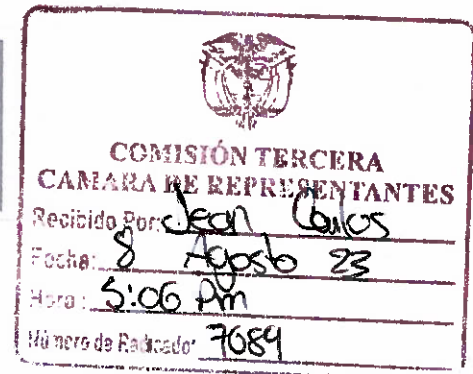 COMISIÓN TERCERA
CAMARA DE REPRESENTANTES
Recibido Por: Jean Carlos
Fecha: 8 Agosto 23
Hora: 5:06 Pm
Número de Radicado: 7089